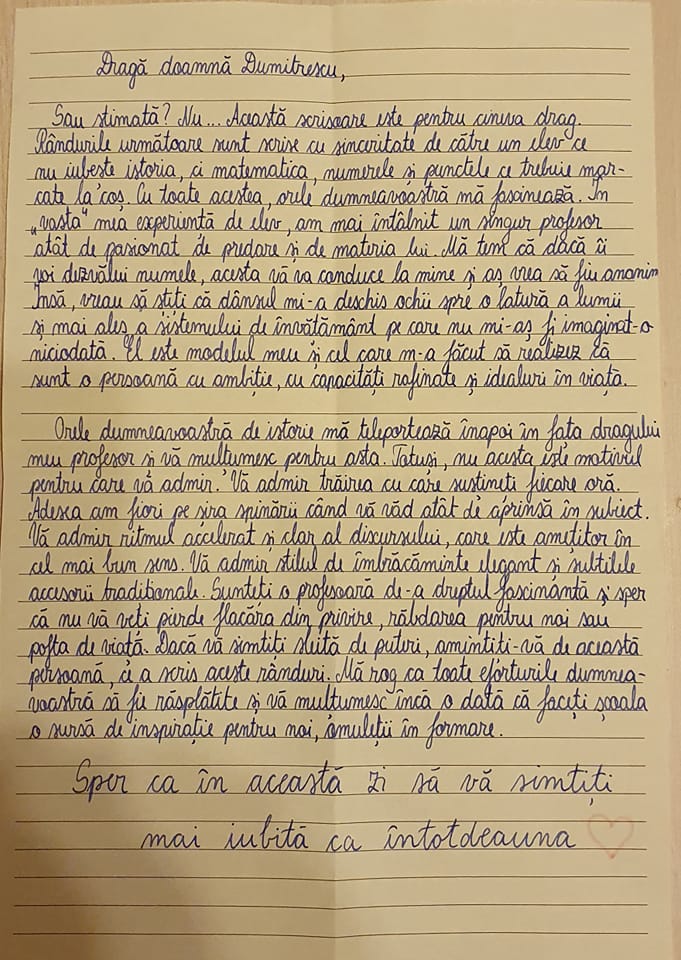 Dragă doamnă Dumitrescu,
Sau stimată? Nu... Această scrisoare este pentru cineva drag.
Rândurile următoare sunt scrise cu sinceritate de către un elev ce
nu iubește istoria, ci matematica, numerele și punctele ce trebuie mar-
cate la coș. Cu toate acestea, orele dumneavoastră mă fascinează. În
„vasta" mea experiență de elev, am mai întâlnit un singur profesor
atât de pasionat de predare și de materia lui. Mă tem că dacă îi
voi dezvălui numele, acesta vă va conduce la mine și aș vrea să fiu anonim
Însă, vreau să știți că dânsul mi-a deschis ochii spre o latură a lumii
și mai ales a sistemului de învățământ pe care nu mi-aș fi imaginat-o
niciodată. El este modelul meu și cel care m-a făcut să realizez că
sunt o persoană cu ambiție, cu capacități rafinate și idealuri în viață.
Orele dumneavoastră de istorie mă teleportează înapoi în fața dragului
meu profesor și vă mulțumesc pentru asta. Totuși, nu acesta este motivul
pentru care vă admir. Vă admir trăirea cu care susțineți fiecare oră.
Adesea am fiori pe șira spinării când vă văd atât de aprinsă în subiect.
Vă admir ritmul accelerat și clar al discursului, care este amețitor în
cel mai bun sens. Vă admir stilul de îmbrăcăminte elegant și subtilele
accesorii tradiționale. Sunteți o profesoară de-a dreptul fascinantă și sper
că nu vă veți pierde flacăra din privire, răbdarea pentru noi sau
pofta de viață. Dacă vă simțiți sleită de puteri, amintiți-vă de această
persoană, ce a scris aceste rânduri. Mă rog ca toate eforturile dumnea-
voastră să fie răsplătite și vă mulțumesc încă o dată că faceți școala
o sursă de inspirație pentru noi, omuleții în formare.
Sper ca în această zi să vă simțiți
mai iubită ca întotdeauna